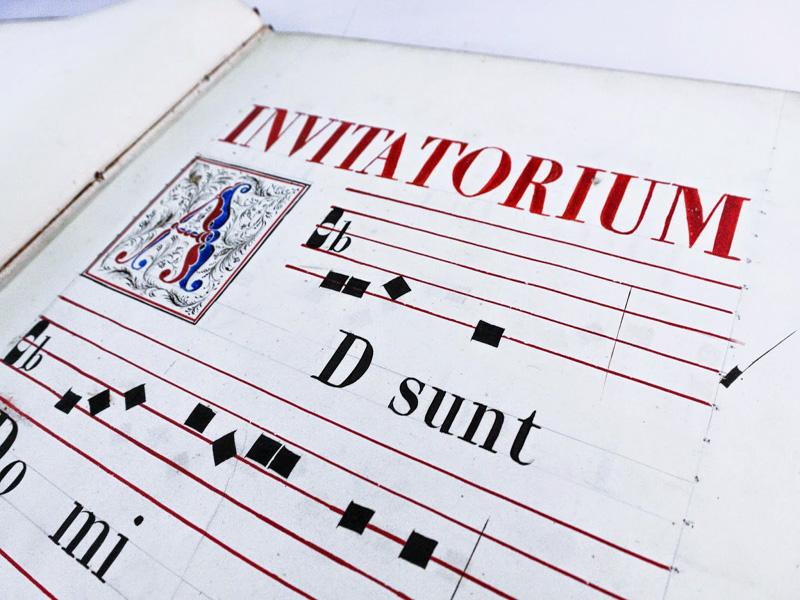 INVITATORIUM
A D sunt
Do mi